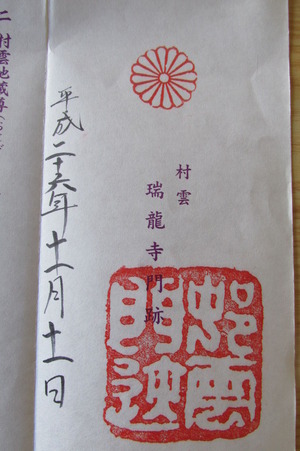 村雲
瑞龍寺門跡
邨雲
門迹
平成二十六年十一月十一日
二 村雲地蔵尊